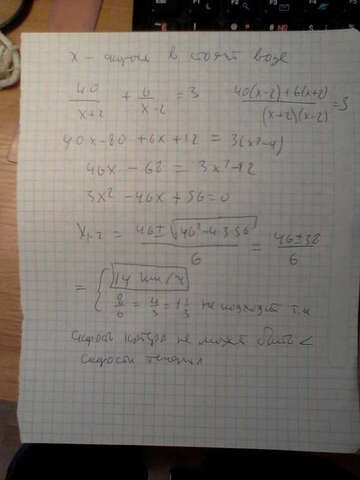 x - скорость в стоят воде
40/(x+2) + 6/(x-2) = 3 (40(x-2)+6(x+2))/((x+2)(x-2)) = 3
40x-80 + 6x + 12 = 3(x²-4)
46x - 68 = 3x²-12
3x² - 46x + 56 = 0
x₁,₂ = (46 ± √(46²-4·3·56))/6 = (46±38)/6
= { 14 км/ч
8/6 = 4/3 = 1 1/3 не подходит т.к
скорость катера не может быть <
скорости течения